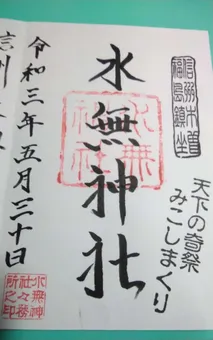 信州木曽
福島鎮坐
天下の奇祭
みこしまくり
水無神社
水無
神社
令和三年五月三十日
水無神
社々務
所之印
信州